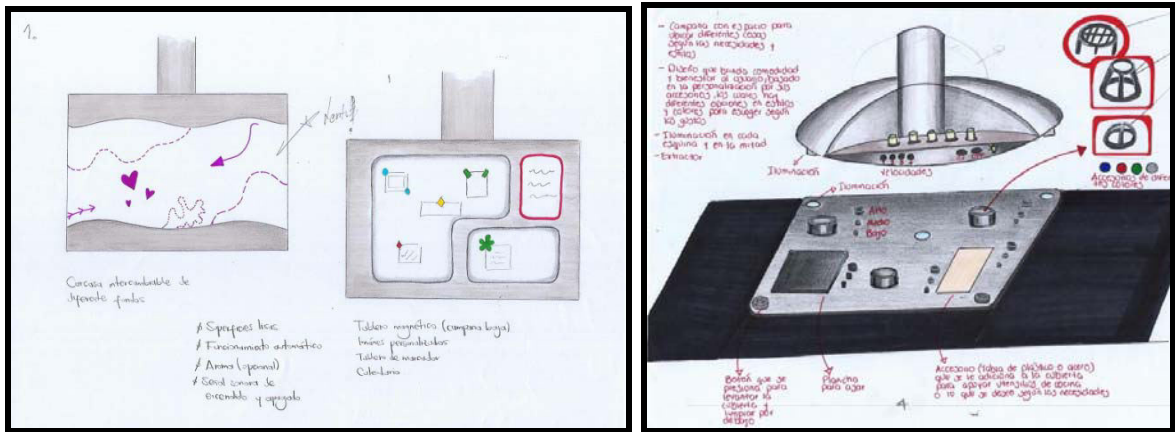 1.
Carcasa intercambiable de
diferente fondos
/ Superficies lisas
/ Funcionamiento automático
/ Aroma (opcional)
/ Señal sonora de
encendido y apagado
Tablero magnético (campana baja)
Imánes personalizados
Tablero de marcador
Calendario
- Campana con espacio para
ubicar diferentes cosas
según las necesidades y
estilos
- Diseño que brinda comodidad
y bienestar al usuario, basado
en la personalización por sus
accesorios, los cuales hay
diferentes opciones en estilos
y colores para escoger según
los gustos
- Iluminación en cada
esquina y en la mitad
- Extractor
Iluminación
velocidades
Accesorios de
colores
Iluminación
Alto
Medio
Bajo
Botón que se
presiona para
levantar la
cubierta y
limpiar por
debajo
Plancha
para asar
Accesorio (tabla de plástico o acero)
que se le adiciona a la cubierta
para apoyar utensilios de cocina
o lo que se desee según las necesidades
4